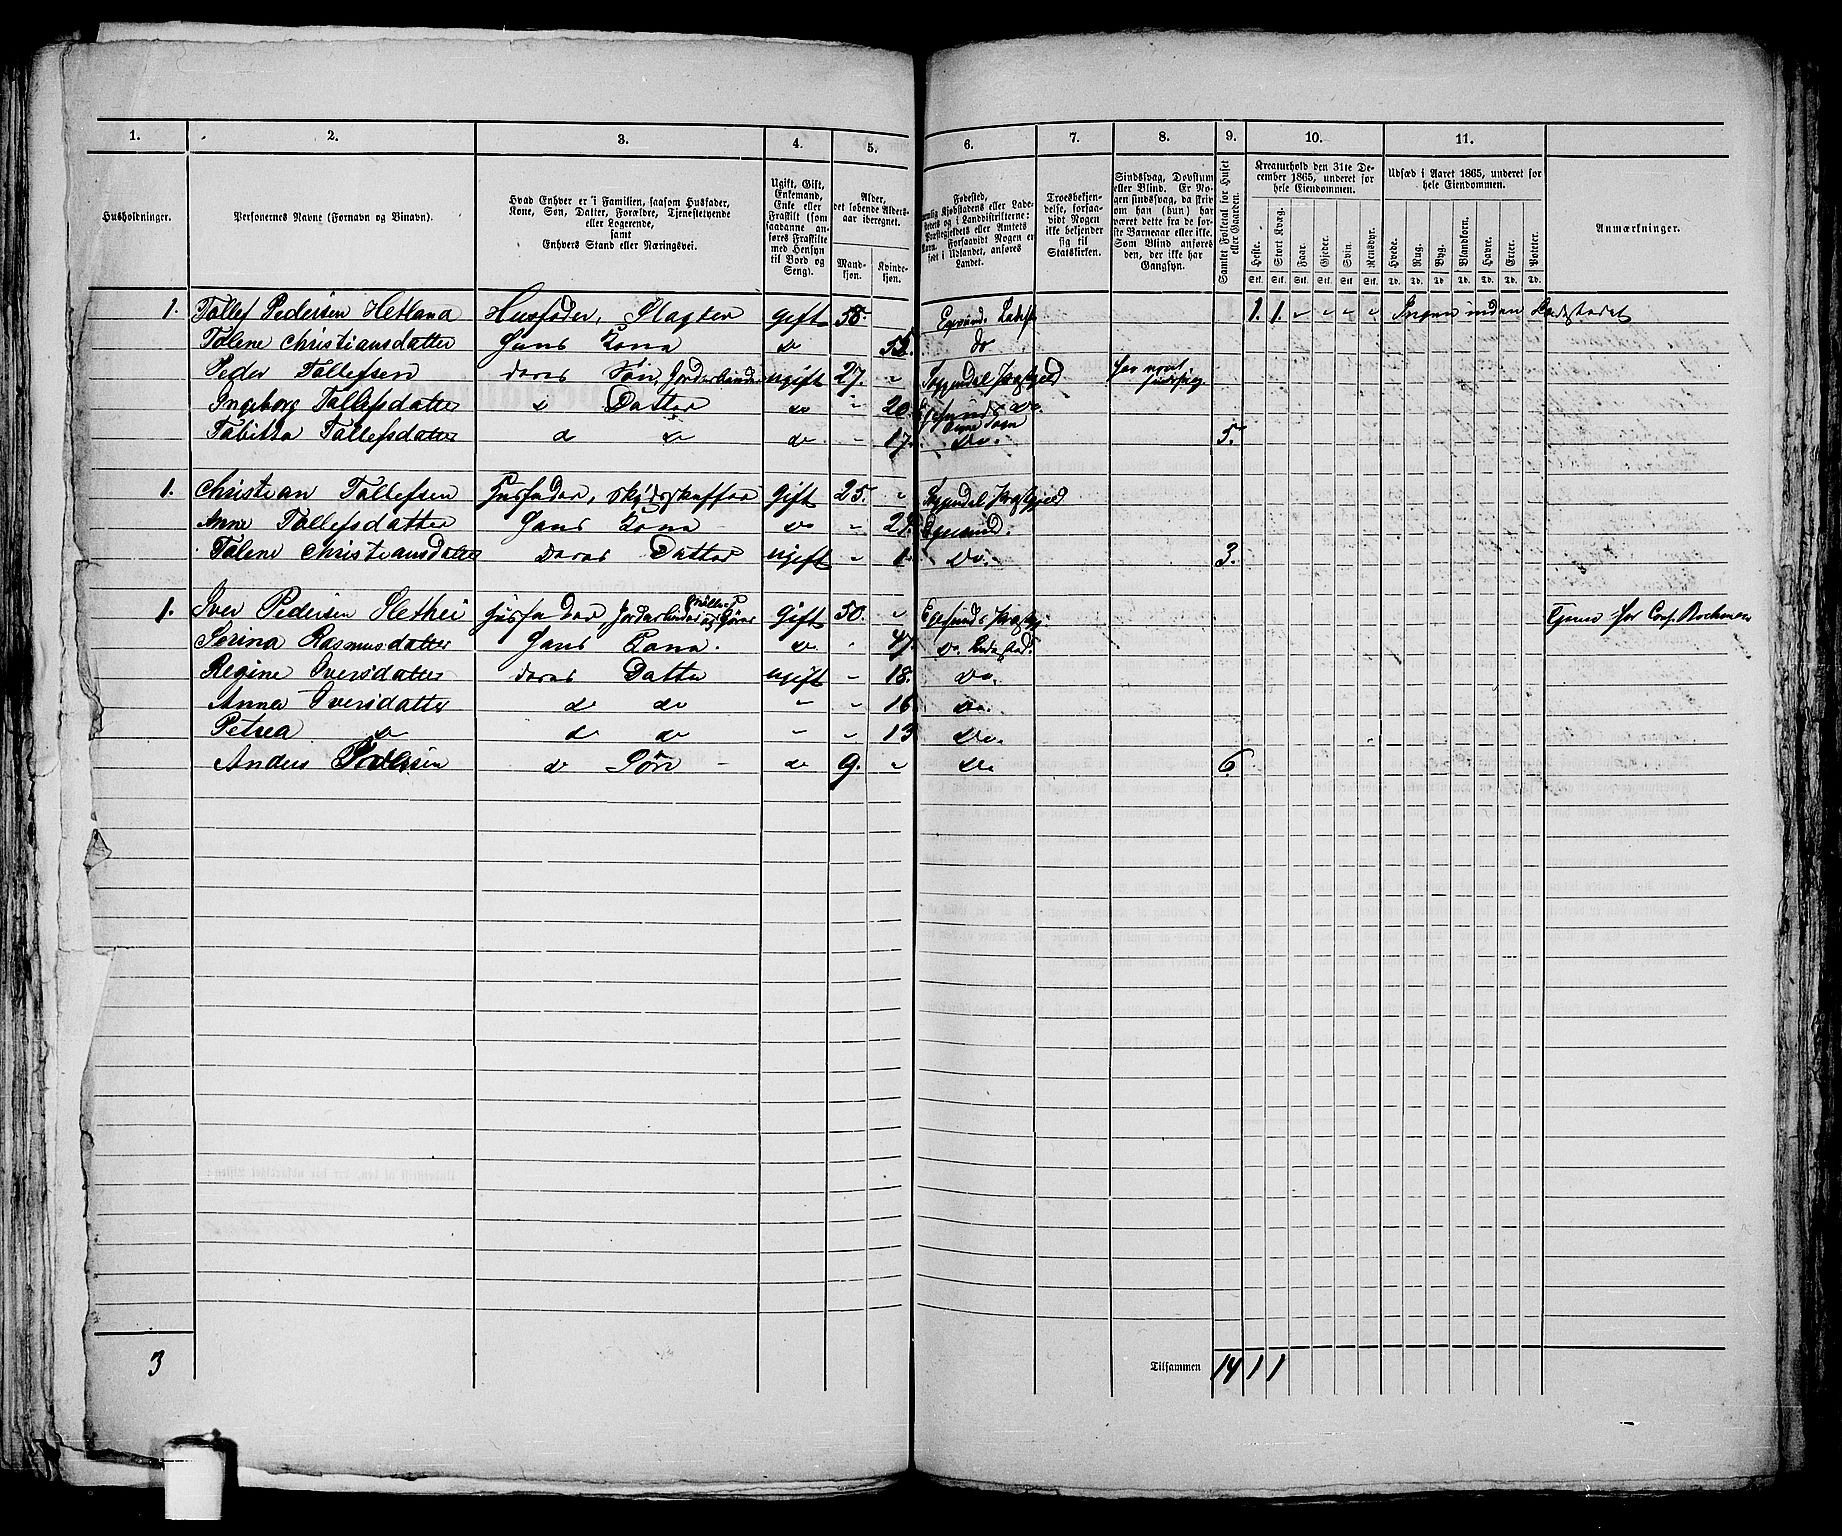 1. 2. 3. 4. 5. 6. 7. 8. 9. 10. 11.
Husholdninger.
Personernes Navne (Fornavn og Binavn).
Hvad Enhver er i Familien, saasom Husfader,
Kone, Søn, Datter, Forældre, Tjenestetyende
eller Logerende,
samt
Enhvers Stand eller Næringsvei.
Ugift, Gift,
Enkemand,
Enke eller
Fraskilt (som
saadanne an-
føres Fraskilte
med Hensyn
til Bord og
Seng).
Alder,
det løbende Alders-
aar iberegnet.
Mand-
kjøn.
Kvinde-
kjøn.
Fødested,
Kjøbstadens eller Lade-
stedets og i Landdistrikterne:
Præstegjeldets eller Amtets
Navn. Forsaavidt Nogen er
født i Udlandet, anføres
Landet.
Troesbekjen-
delse, forsaa-
vidt Nogen
ikke bekjender
sig til
Statskirken.
Sindssvag, Døvstum
eller Blind. Er No-
gen sindssvag, da skri-
ves om han (hun) har
været dette fra de før-
ste Barneaar eller ikke.
Som Blind anføres
den, der ikke har
Gangsyn.
Samlet Folketal for Huset
eller Gaarden.
Kreaturhold den 31te De-
cember 1865, underet for
hele Eiendommen.
Heste. Stort Kvæg. Faar. Gjeder. Svin. Rensdyr.
Stk. Stk. Stk. Stk. Stk. Stk.
Udsæd i Aaret 1865, underet for
hele Eiendommen.
Hvede. Rug. Byg. Blandkorn. Havre. Erter. Poteter.
Td. Td. Td. Td. Td. Td. Td.
Anmærkninger.
1. Tollef Pedersen Hetland Husfader, Slagter Gift 58. Egersund Ladest 1. 1. „ „ „ „ Ingen inden Ladestedet
Tolene Christiansdatter Hans Kone do do
Peder Tollefsen deres Søn, Jordarbeider ugift 27. „ Soggendal Præstgjeld
Ingeborg Tollefsdatter d Datter do „ 20.
Tabitta Tollefsdatter d d do „ 17. do. 5.
1. Christian Tollefsen Husfader, Skydsskaffer Gift 25. „ Soggendal Præstgjeld
Anne Tollefsdatter Hans Kone do „ Egersund.
Tolene Christiansdatter deres Datter ugift „ 1. do. 3.
1. Iver Pedersen Slethei Husfader, Jordarbeider og Gift 50. „ Egersunds Præstgj
Serina Rasmusdatter Hans Kone. do „ 47. do. Ladested.
Regine Iversdatter deres Datter ugift „ 18. do.
Anna Iversdatter d do „ „ 16. do.
Petrea do d do „ „ 13 do.
Anders d Søn „ do 9. „ do 6.
3 Tilsammen 14 1 1